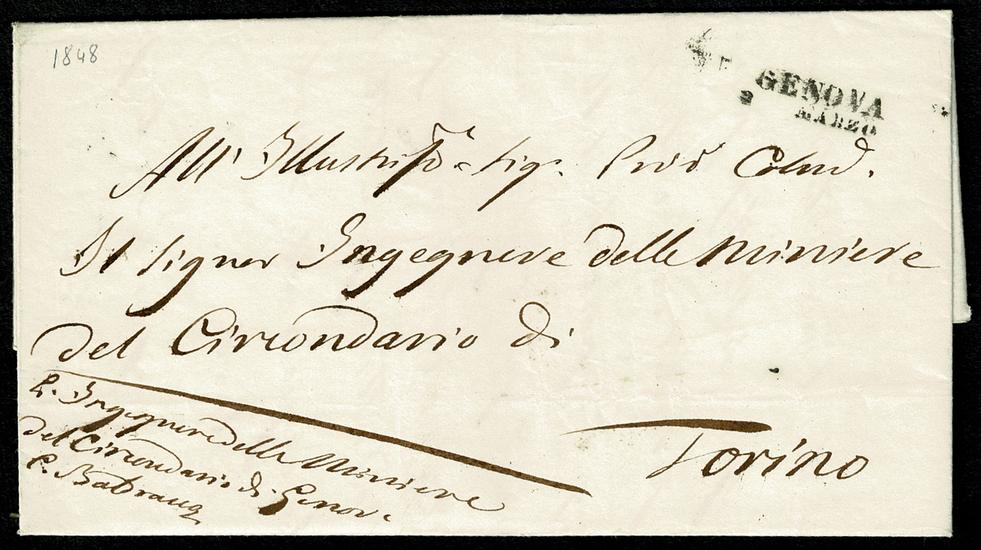 1848
GENOVA
MARZO
All' Illustris.mo Sig.
Il Signor Ingegnere delle Miniere
del Circondario di
Torino
Ingegnere delle Miniere
del Circondario di Genova